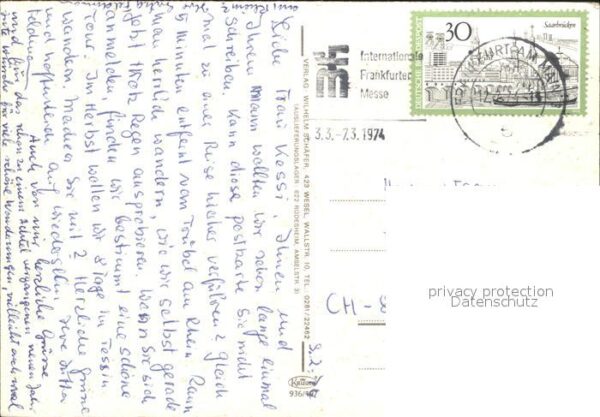 Liebe Frau Kessi, Ihnen und
Ihrem Mann wollten wir schon lange einmal
schreiben. Kann diese Postkarte Sie nicht
mal zu einer Reise hierher verführen? Gleich
5 Minuten entfernt vom Trubel am Rhein kann
man herrlich wandern, wie wir selbst gerade
jetzt trotz Regen ausprobieren. Wenn Sie sich
anmelden, finden wir bestimmt eine schöne
Tour. Im Herbst wollen wir 8 Tage im Tessin
wandern. Machen Sie mit? Herzliche Grüsse
und hoffentlich auf Wiedersehen, Ihre Jutta
Feldmann
Auch von mir herzliche Grüsse
und für das schon zu einem Achtel vergangene neue Jahr
gute Wünsche für viele schöne Wanderungen, vielleicht auch mal
am Rhein
VERLAG WILHELM SCHÄFER, 423 WESEL, WALLSTR. 10, TEL. 0281/22462
(AUSLIEFERUNGSLAGER 622 RÜDESHEIM, AMSELSTR. 3)
936/107
Internationale
Frankfurter
Messe
3.3.-7.3.1974
30
Saarbrücken
DEUTSCHE BUNDESPOST
FRANKFURT AM MAIN
CH-
privacy protection
Datenschutz